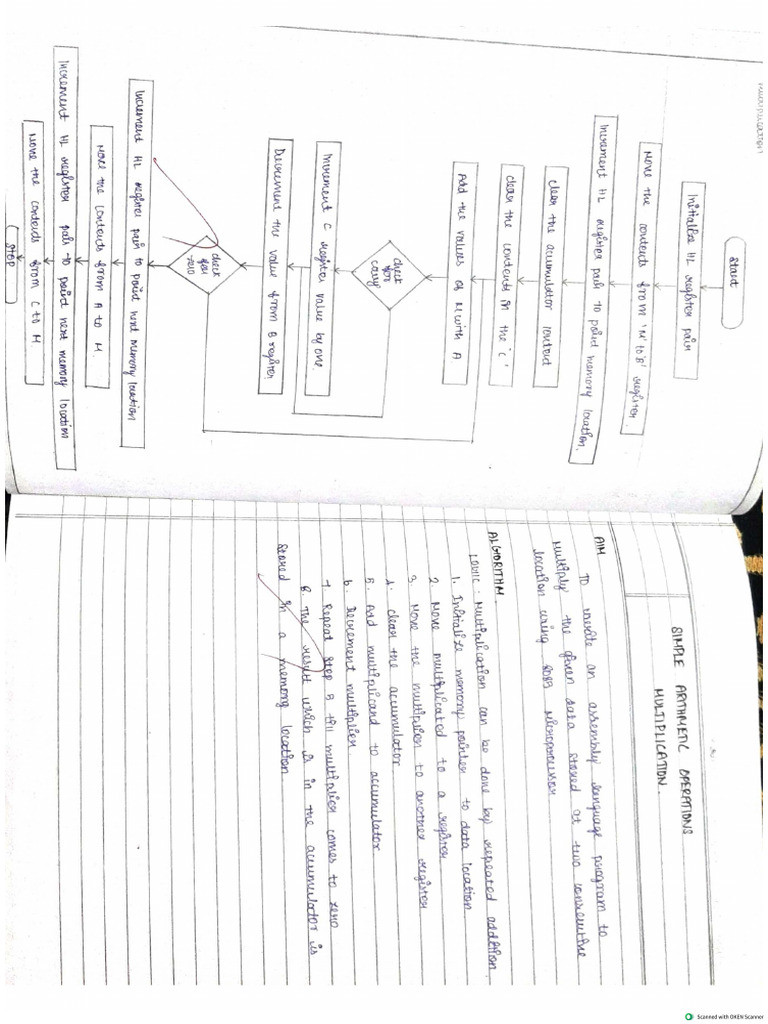 Multiplication
Start
Initialise HL register pair
Move the contents from 'M' to 'B' register.
Increment HL register pair to point memory location.
Clear the accumulator content
Clear the contents in the 'C'
Add the values of M with A
check
for
carry
Increment C register value by one.
Decrement the value from B register.
check
for
zero
Increment HL register pair to point next memory location
Move the contents from A to M.
Increment HL register pair to point next memory location
Move the contents from C to M.
STOP
SIMPLE ARITHMETIC OPERATIONS
MULTIPLICATION.
AIM
To write an assembly language program to
multiply the given data stored at two consecutive
location using 8085 Microprocessor
ALGORITHM.
LOGIC: Multiplication can be done by repeated addition.
1. Initialize memory pointer to data location
2 Move multiplicated to a register
3. Move the multiplier to another register
4. Clear the accumulator
5. Add multiplicand to accumulator
6. Decrement multiplier
7. Repeat step 5 till multiplier comes to zero
8. The result which is in the accumulator is
stored in a memory location
Scanned with OKEN Scanner